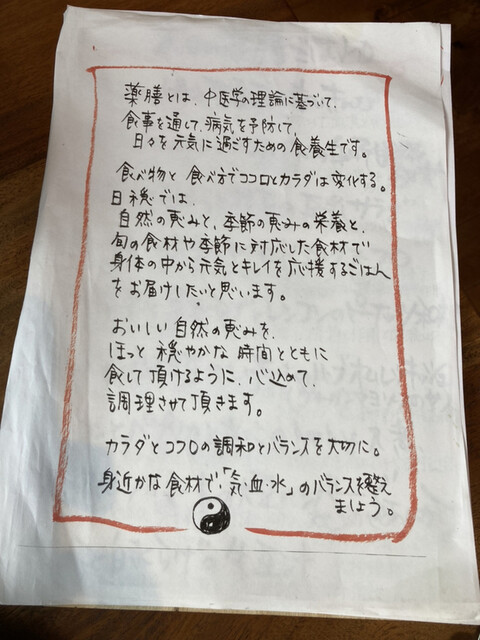 薬膳とは、中医学の理論に基づいて、
食事を通して、病気を予防して、
日々を元気に過ごすための食養生です。
食べ物と食べ方でココロとカラダは変化する。
日穏では、
自然の恵みと、季節の恵みの栄養と、
旬の食材や季節に対応した食材で
身体の中から元気とキレイを応援するごはん
をお届けしたいと思います。
おいしい自然の恵みを、
ほっと穏やかな時間とともに
食して頂けるように、心込めて、
調理させて頂きます。
カラダとココロの調和とバランスを大切に。
身近かな食材で、「気・血・水」のバランスを整え
ましょう。